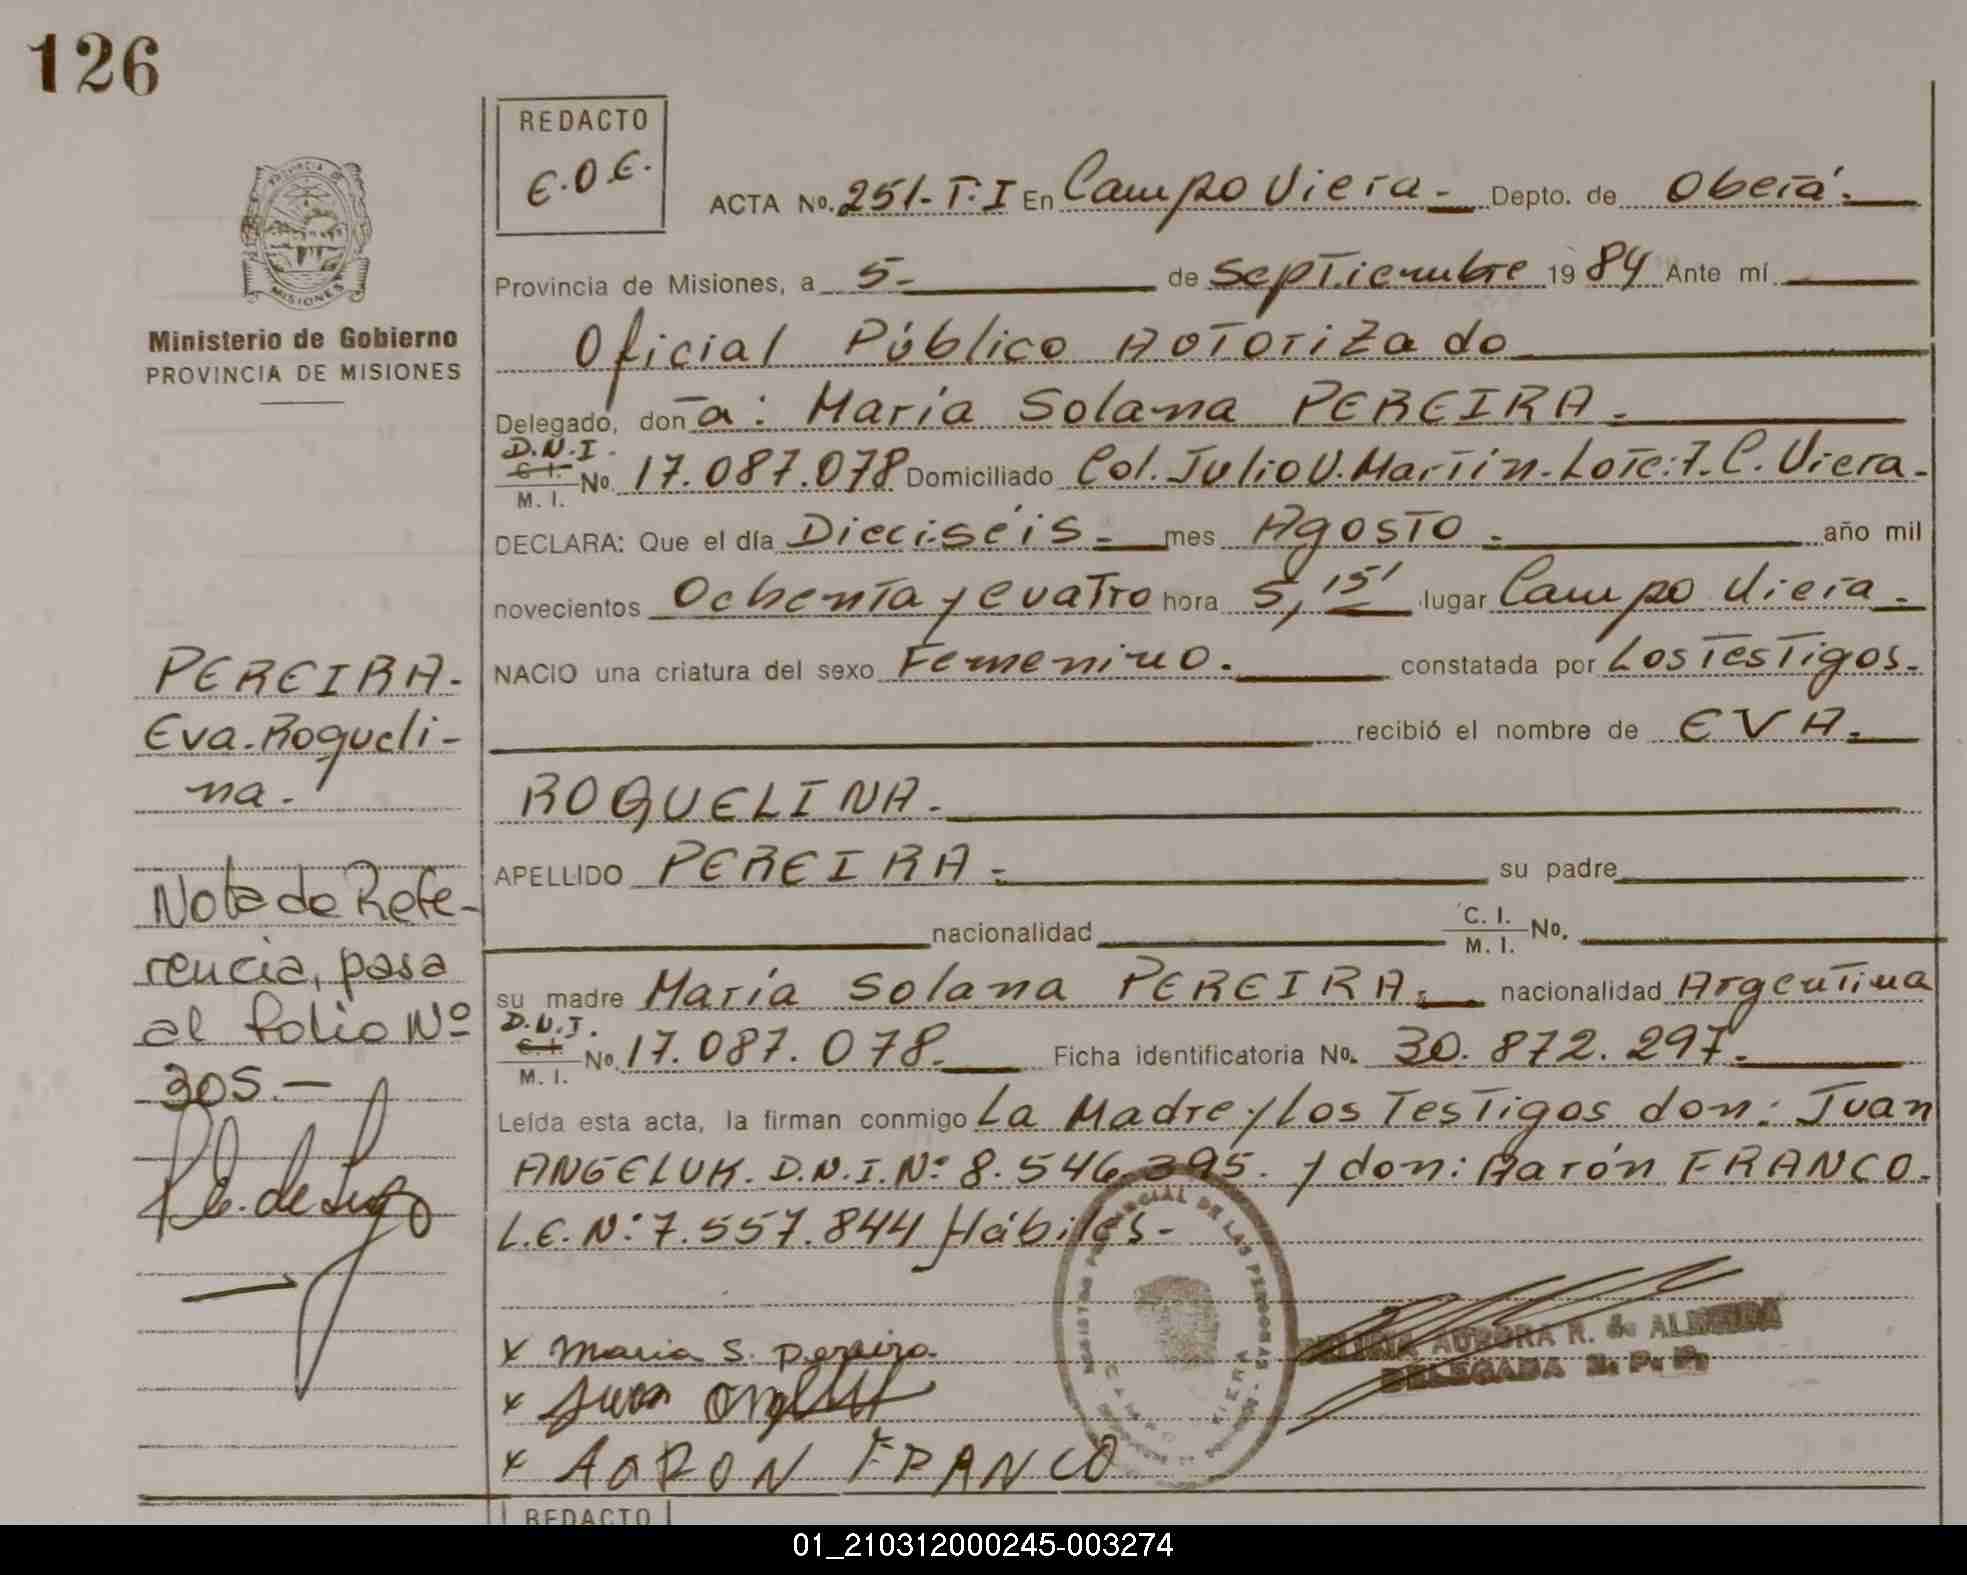 126
REDACTO
E.O.E.
PROVINCIA DE
MISIONES
Ministerio de Gobierno
PROVINCIA DE MISIONES
ACTA No. 251-T:I En Campo Viera- Depto. de Oberá.
Provincia de Misiones, a 5- de Septiembre 19 84 Ante mí
Oficial Público Autorizado
Delegado, don a: María Solana PEREIRA.
D.N.I.
C. I. / M. I. No. 17.087.078 Domiciliado Col. Julio U. Martín-Lote:7.C. Viera-
DECLARA: Que el día Dieciseis- mes Agosto- año mil
novecientos Ochenta y Cuatro hora 5,15' lugar Campo Viera-
NACIO una criatura del sexo Femenino. constatada por Los Testigos-
recibió el nombre de EVA-
ROQUELINA-
APELLIDO PEREIRA- su padre
nacionalidad C. I. / M. I. No.
su madre María Solana PEREIRA- nacionalidad Argentina
D.N.I.
C. I. / M. I. No. 17.087.078- Ficha identificatoria No. 30.872.297-
Leída esta acta, la firman conmigo La Madre y Los Testigos don: Juan
ANGELUK. D.N.I.N°: 8.546.395. y don: Aarón FRANCO.
L.E.N°: 7.557.844 Hábiles-
PEREIRA-
Eva-Roqueli-
na-
Nota de Refe-
rencia, pasa
al folio Nº
305.—
x Maria S. Pereira
x Juan
x AARON FRANCO
PROVINCIAL DE LAS PERSONAS
CAMPO VIERA
AURORA R. de ALMEIDA
DELEGADA R. P. P.
REDACTO
01_210312000245-003274